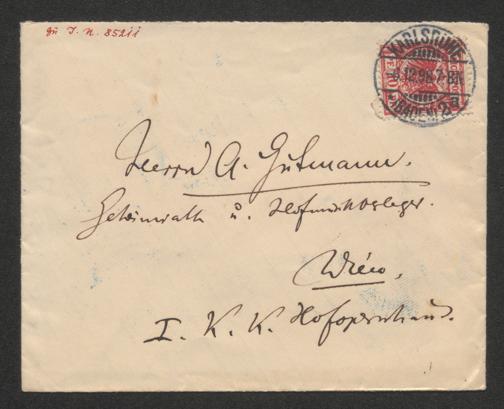 zu I. N. 85211
KARLSRUHE
(BADEN) 2
Herrn A. Gutmann.
Geheimrath u. Hofmusikverleger.
Wien,
I. K. K. Hofopernhaus.